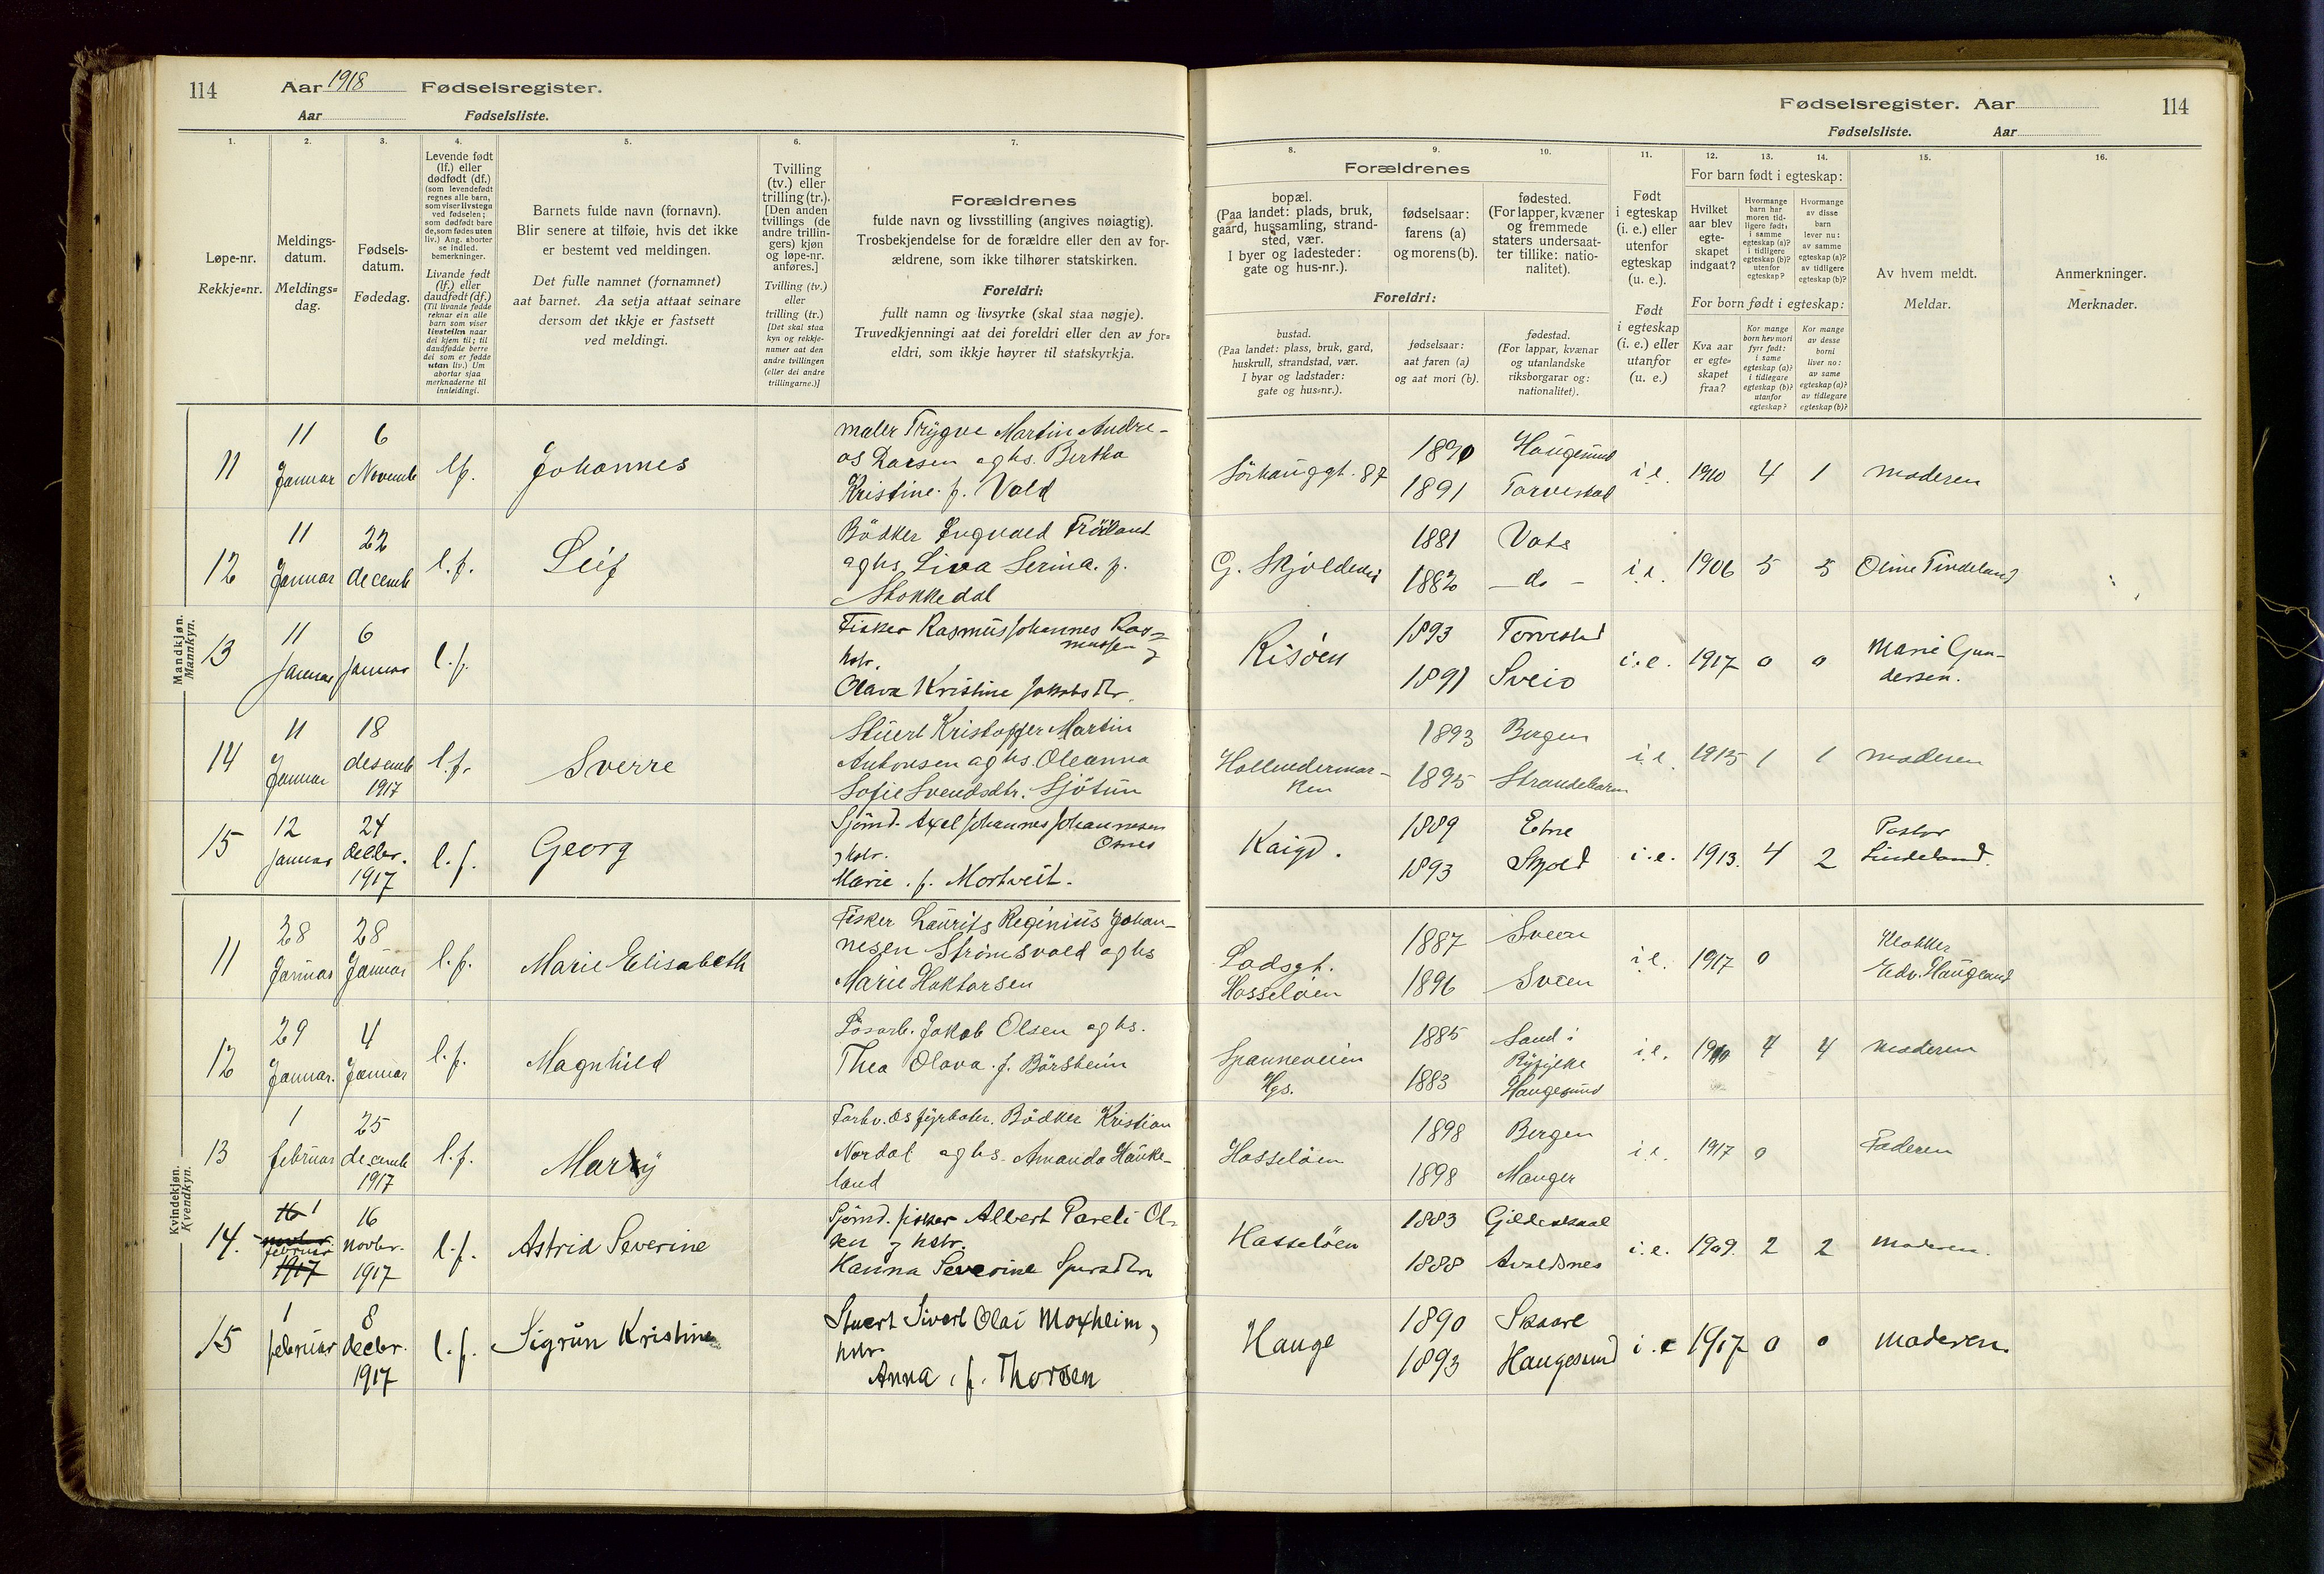 114 Aar 1918 Fødselsregister.
Aar Fødselsliste.
Fødselsregister. Aar 114
Fødselsliste. Aar
1. 2. 3. 4. 5. 6. 7.
8. 9. 10. 11. 12. 13. 14. 15. 16.
Løpe-nr.
Rekkje=nr.
Meldings-
datum.
Meldings=
dag.
Fødsels-
datum.
Fødedag.
Levende født
(lf.) eller
dødfødt (df.)
(som levendefødt
regnes alle barn,
som viser livstegn
ved fødselen;
som dødfødt bare
de, som fødes uten
liv.) Ang. aborter
se indled.
bemerkninger.
Livande født
(lf.) eller
daudfødt (df.)
(Til livande fødde
reknar ein alle
born som viser
livsteikn naar
dei kjem til; til
daudfødde berre
dei som er fødde
utan liv.) Um
abortar sjaa
merknaderne til
innleidingi.
Barnets fulde navn (fornavn).
Blir senere at tilføie, hvis det ikke
er bestemt ved meldingen.
Det fulle namnet (fornamnet)
aat barnet. Aa setja attaat seinare
dersom det ikkje er fastsett
ved meldingi.
Tvilling
(tv.) eller
trilling (tr.).
[Den anden
tvillings (de
andre trillin-
gers) kjøn
og løpe-nr.
anføres.]
Tvilling (tv.)
eller
trilling (tr.)
[Det skal staa
kyn og rekkje-
numer aat den
andre tvillingen
(eller dei andre
trillingarne.)]
Forældrenes
fulde navn og livsstilling (angives nøiagtig).
Trosbekjendelse for de forældre eller den av for-
ældrene, som ikke tilhører statskirken.
Foreldri:
fullt namn og livsyrke (skal staa nøgje).
Truvedkjenningi aat dei foreldri eller den av for=
eldri, som ikkje høyrer til statskyrkja.
Forældrenes
bopæl.
(Paa landet: plads, bruk,
gaard, hussamling, strand-
sted, vær.
I byer og ladesteder:
gate og hus-nr.).
fødselsaar:
farens (a)
og morens (b).
fødested.
(For lapper, kvæner
og fremmede
staters undersaat-
ter tillike: natio-
nalitet).
Foreldri:
bustad.
(Paa landet: plass, bruk, gard,
huskrull, strandstad, vær.
I byar og ladstader:
gate og hus=nr.).
fødselsaar:
aat faren (a)
og aat mori (b).
fødestad.
(For lappar, kvænar
og utanlandske
riksborgarar og:
nationalitet).
Født
i egteskap
(i. e.) eller
utenfor
egteskap
(u. e.).
Født
i egteskap
(i. e.) eller
utanfor
(u. e.)
For barn født i egteskap:
Hvilket
aar blev
egte-
skapet
indgaat?
Hvormange
barn har
moren tid-
ligere født:
i samme
egteskap (a)?
i tidligere
egteskap (b)?
utenfor
egteskap?
Hvormange
av disse
barn
lever nu:
av samme
egteskap (a)?
av tidligere
egteskap (b)?
For born født i egteskap:
Kva aar
er egte-
skapet
fraa?
Kor mange
born hev mori
fyrr født:
i same
egteskap (a)?
i tidlegare
egteskap (b)?
utanfor
egteskap?
Kor mange
av desse
borni
liver no:
av same
egteskap (a)?
av tidlegare
egteskap (b)?
Av hvem meldt.
Meldar.
Anmerkninger.
Merknader.
Mandkjøn.
Mannkyn.
11 11 Januar 6 Novemb lf. Johannes
maler Trygve Martin Andre-
as Larsen og hs. Bertha
Kristine f. Vold
Sörhauggt. 87 1890 1891 Haugesund Torvestad i.e. 1910 4 1 moderen
12 11 Januar 22 decemb l.f. Leif
Bödker Ingvald Fröland
og hs Liva Serina. f.
Stokkedal
G. Skjoldevei 1881 1882 Vats - do - i.e. 1906 5 5 Oline Tindeland
13 11 Januar 6 Januar l.f.
Fisker Rasmus Johannes Ras=
mussen og
hstr.
Olava Kristine Jakobsdtr.
Risöen 1893 1891 Torvestad Sveio i.e. 1917 0 0 Marie Gun-
dersen.
14 11 Januar 18 desemb 1917 l.f. Sverre
Stuert Kristoffer Martin
Antonsen og hs. Oleanna
Sofie Svendsdtr. Sjötun
Hollendermar-
ken 1893 1895 Bergen Strandebarm i.e. 1915 1 1 moderen
15 12 Januar 24 decbr. 1917 l.f. Georg
Sjömd. Axel Johannes Johannesen
Osnes
og hstr.
Marie. f. Mortveit.
Kaigd. 1889 1893 Etne Skjold i.e. 1913. 4 2 Pastor
Lindeland.
Kvindekjøn.
Kvendkyn.
11 28 Januar 28 Januar l.f. Marie Elisabeth
Fisker Laurits Reginius Johan-
nesen Strömsvold og hs
Marie Hoktorsen
Lodsgt.
Hasselöen 1887 1896 Sveen Sveen i.e. 1917 0 Klokker
Edv. Haugland
12 29 Januar. 4 Januar l.f. Magnhild
Lösarb. Jakob Olsen og hs.
Thea Olava f. Börsheim
Spanneveien
Hgs. 1885 1883 Sand i
Ryfylke
Haugesund i.e. 1910 4 4 moderen
13 1 februar 25 decemb 1917 l.f. Marry
Bödker Kristian
Nordal og hs. Amanda Hauke-
land
Hasselöen 1898 1898 Bergen Manger i.e. 1917 0 Faderen
14. 16 1 novbr. februar 1917 16 novbr. 1917 l.f. Astrid Severine
Sjömd. fisker Albert Pareli Ol-
sen og hstr.
Hanna Severine
Hasselöen 1883 1888 Gildeskaal Avaldsnes i.e. 1909. 2 2 moderen.
15 1 februar 8 decbr. 1917 l.f. Sigrun Kristine
Stuert Sivert Olai Moxheim og
hstr.
Anna. f. Thorsen
Hauge 1890 1893 Skaare Haugesund i.e 1917 0 0 moderen.